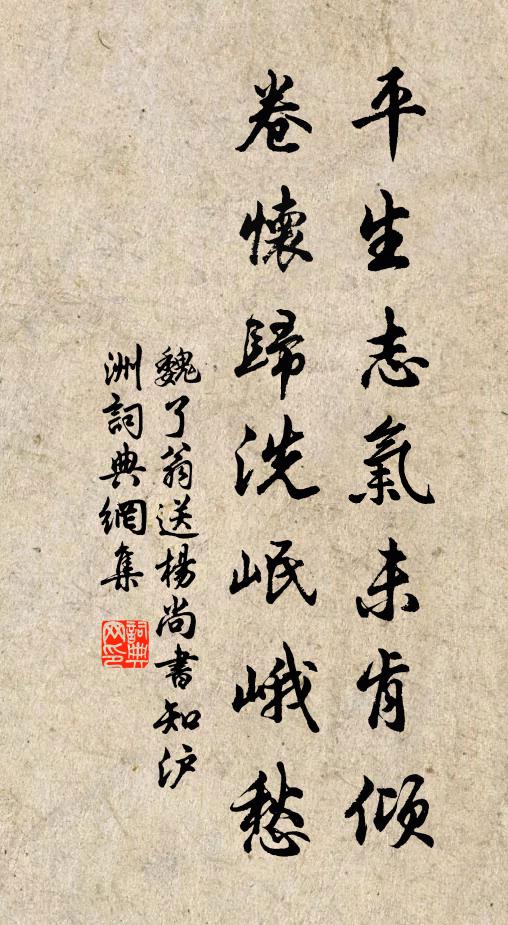 平生志氣未肯傾
卷懷歸洗岷峨愁
魏了翁送楊尚書知泸
洲詞典網集
詞典网印